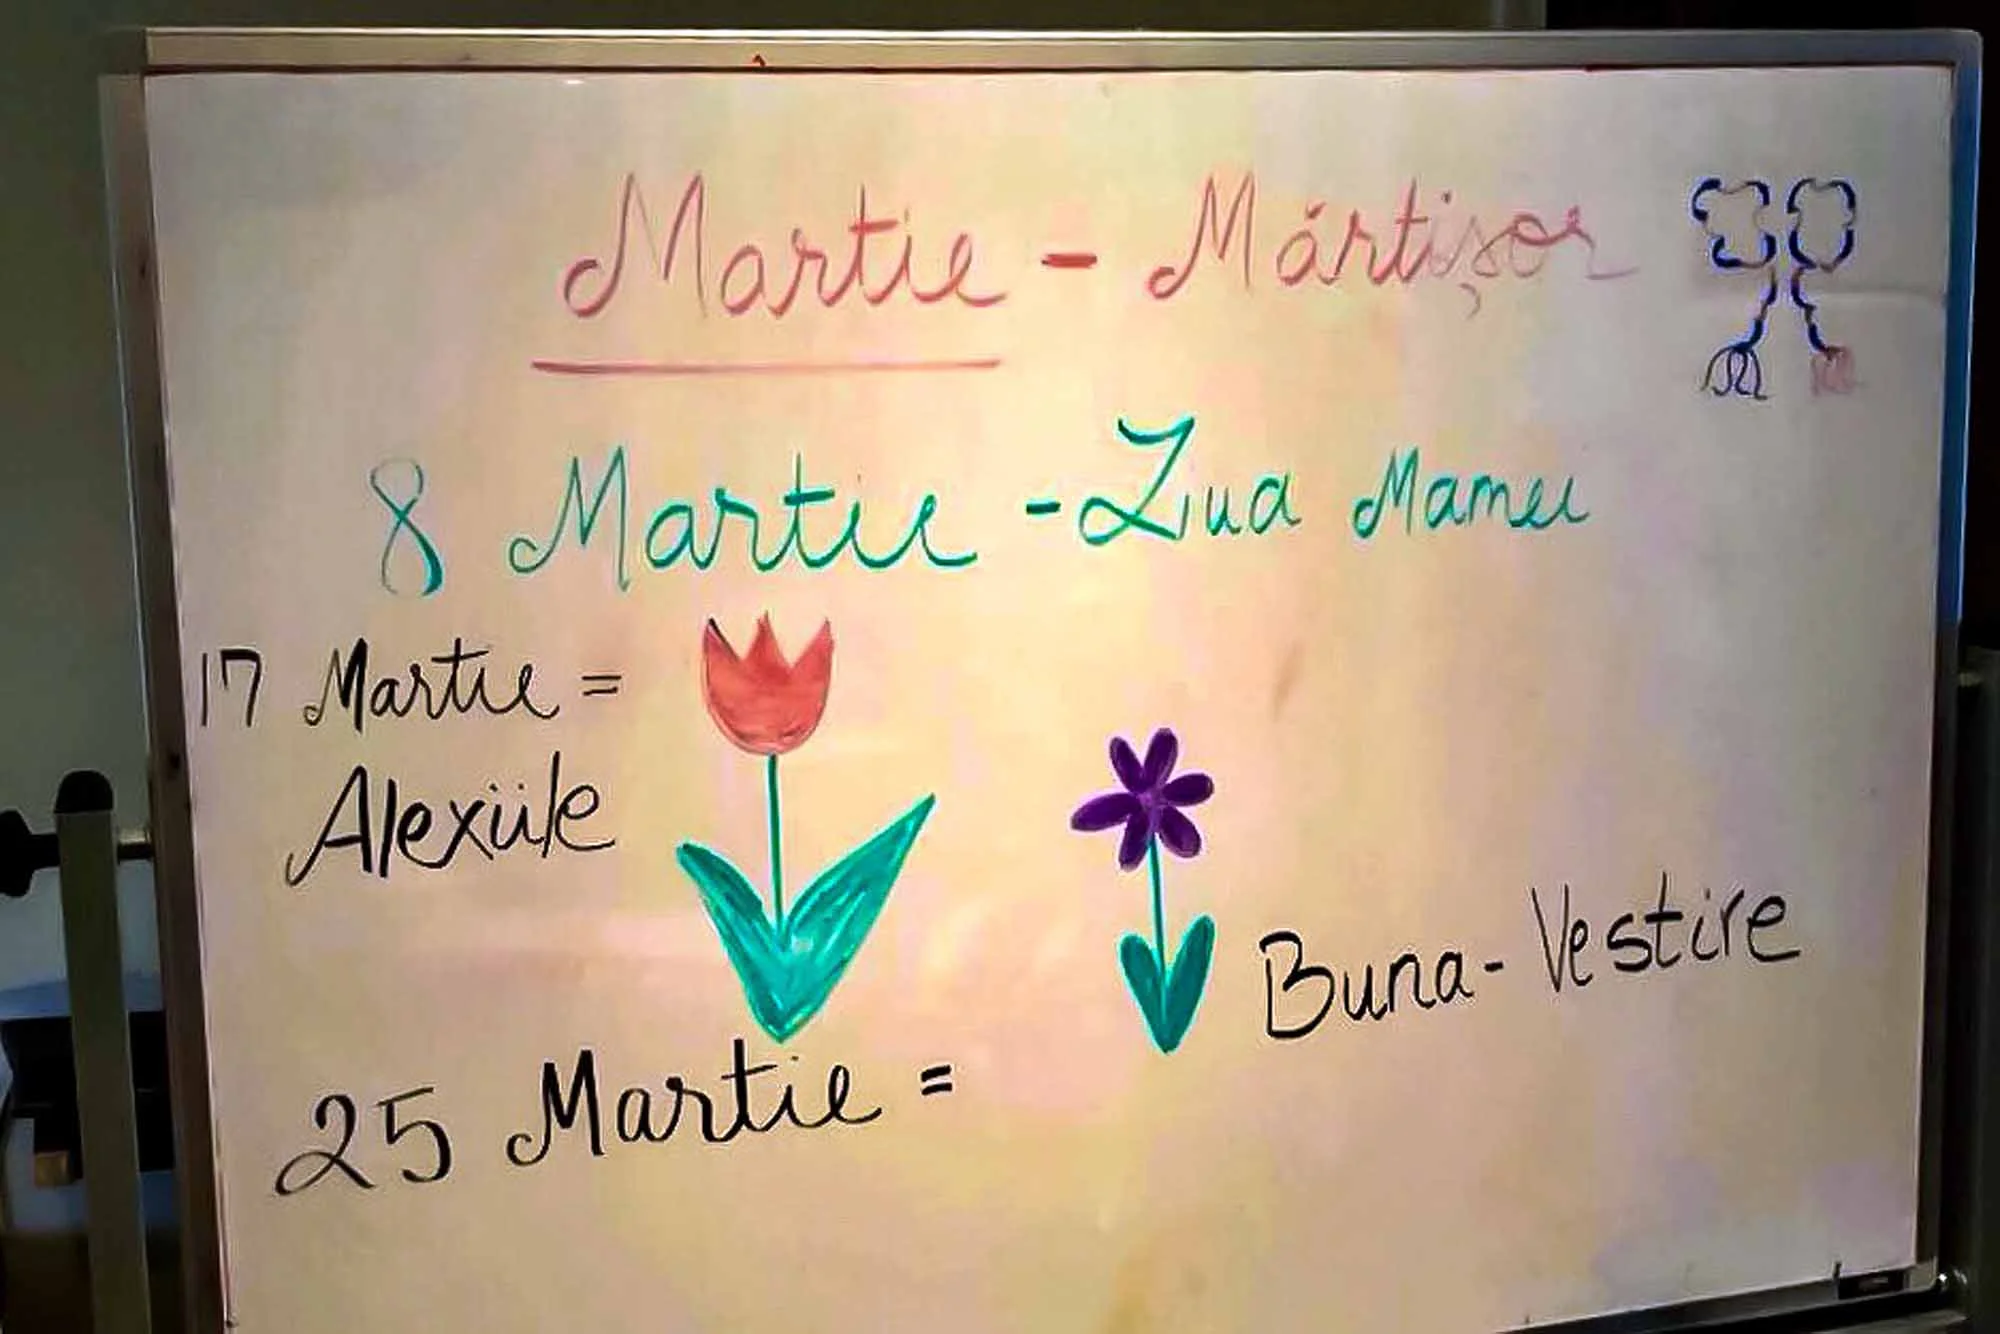 Martie - Mărtișor
8 Martie - Ziua Mamei
17 Martie =
Alexiile
25 Martie =
Buna-Vestire